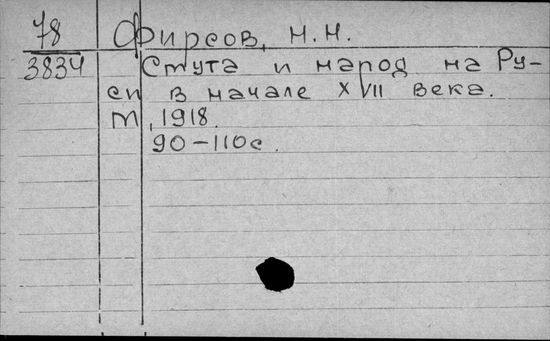 78
3834
Фирсов, Н.Н.
Смута и народ на Ру-
си в начале XVII века.
М, 1918.
90-110с.